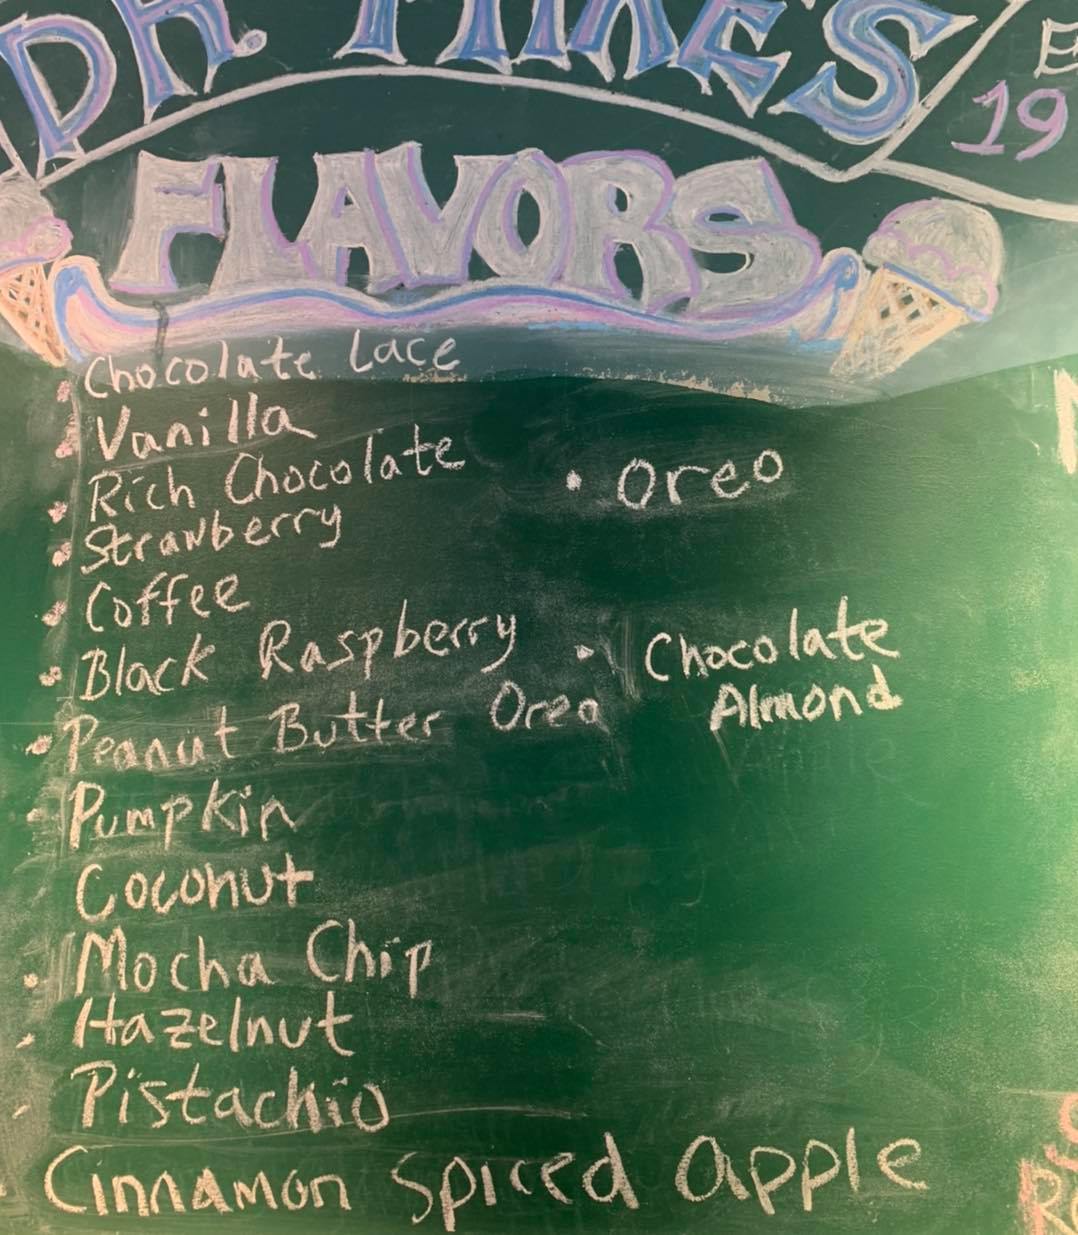 DR. MIKE'S
19
FLAVORS
Chocolate Lace
Vanilla
Rich Chocolate
Strawberry
Coffee
Black Raspberry
Peanut Butter Oreo
Pumpkin
Coconut
Mocha Chip
Hazelnut
Pistachio
Cinnamon Spiced Apple
• Oreo
• Chocolate
Almond